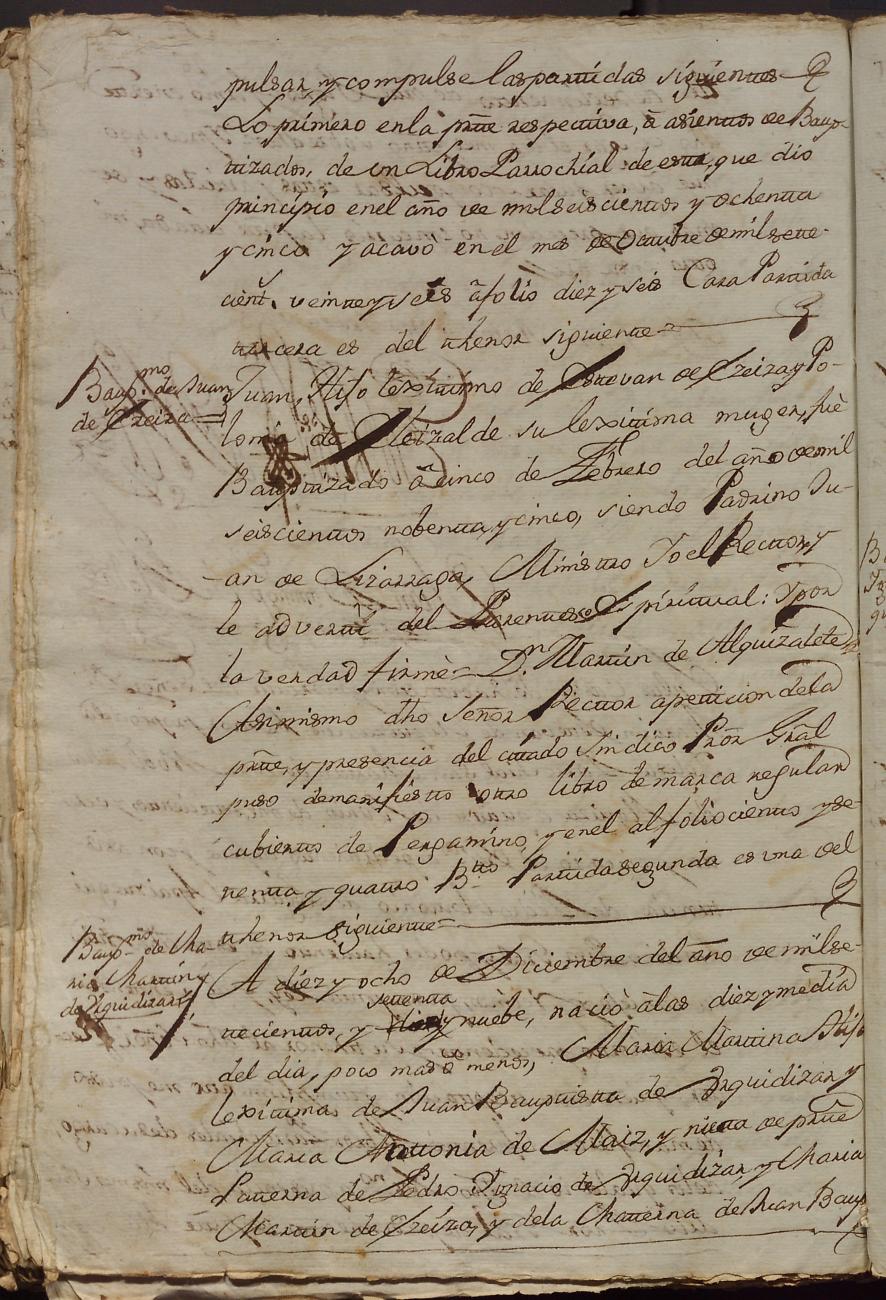 pulsar, y compulse las partidas siguientes
Lo primero en la prte respectiva, â asientos de Baup-
tizados, de un Libro Parrochial de esta, que dio
principio en el año de mil seiscientos y ochenta
y cinco y acavò en el mes de Octubre de mil sete-
cient.s veinte y seis â folio diez y seis Cara Partida
tercera es del thenor siguiente=
Baup.mo de Juan
de Ezeiza=
Juan, Hijo lexitimo de Estevan de Ezeiza y Po-
lonia de Eleizalde su lexitima muger, fuè
Bauptizado â cinco de Febrero del año de mil
seiscientos nobenta, y cinco, siendo Padrino Ju-
-an de Lizarraga, Ministro Yo el Rector, y
le advertî del Parentesco Spiritual: Y por
la verdad firmè= D.n Martin de Alquizalete
Asimismo dho Señor Rector a peticion de la
prte, y presencia del citado Sindico Pror Gral
puso de manifiesto otro libro de marca regular
cubierto de Pergamino, y en el al folio ciento y se-
tenta, y quatro B.to Partida segunda es una del
thenor siguiente=
Baup.mo de Ma-
ria Martin y
de Yguidizar
A diez y ocho de Diciembre del año de mil se-
setenta
tecientos, y y nuebe, naciò â las diez y media
del dia, poco mas ò menos, Maria Martina Hija
lexitima de Juan Bauptista de Yrguidizar, y
Maria Anttonia de Maiz, y nieta de prte
Paterna de Pedro Ygnacio de Yrguidizar, y Maria
Martin de Ezeiza, y de la Materna de Juan Baup